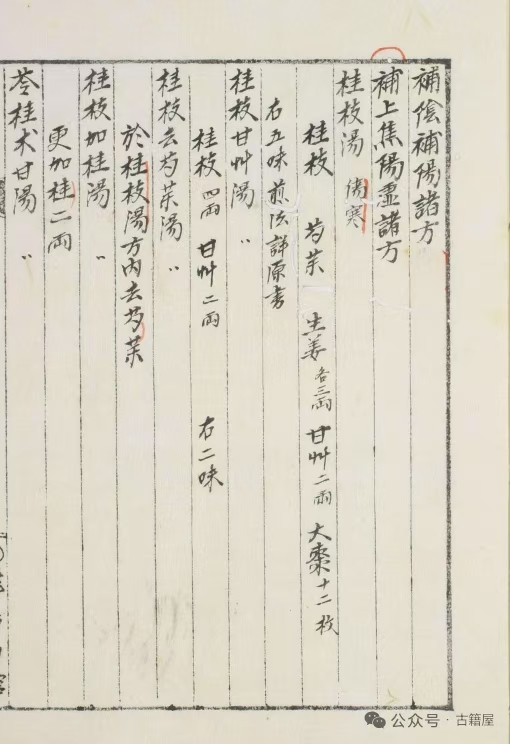 補陰補陽諸方
補上焦陽虛諸方
桂枝湯 傷寒
桂枝 芍藥 生姜各三兩 甘艸二兩 大棗十二枚
右五味煎法詳原書
桂枝甘艸湯 〃
桂枝四兩 甘艸二兩 右二味
桂枝去芍茱湯 〃
於桂枝湯方內去芍茱
桂枝加桂湯 〃
更加桂二兩
苓桂术甘湯 〃
公众号·古籍屋